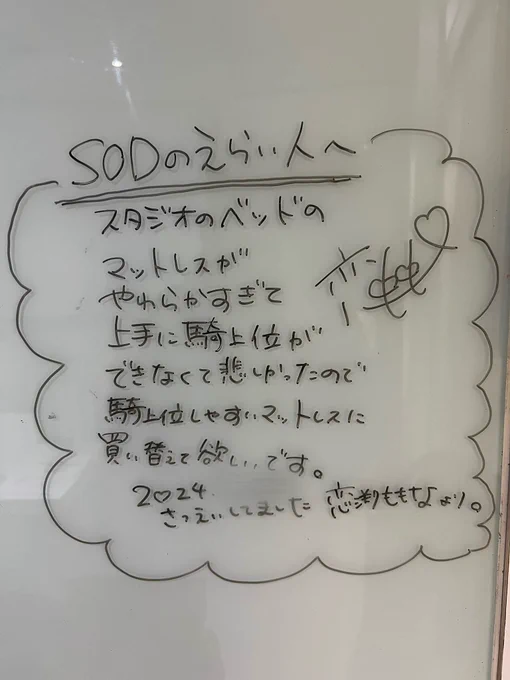 SODのえらい人へ
スタジオのベッドの
マットレスが
やわらかすぎて
上手に騎上位が
できなくて悲しかったので
騎上位しやすいマットレスに
買い替えて欲しいです。
2♡24
さつえいしてました 恋渕ももなより。